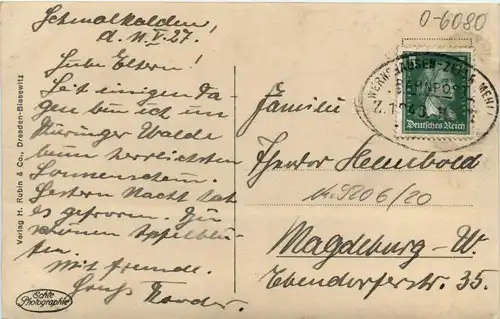 Schmalkalden,
d. 11. V. 27.
Liebe Eltern!
Seit einigen Ta-
gen bin ich im
Thüringer Walde
beim herrlichsten
Sonnenschein.
Gestern Nacht hat
es gefroren.
schönen Apfelblü-
ten.
Mit Freude
Gruß Theodor.
Verlag H. Rubin & Co., Dresden-Blasewitz
Echte
Photographie
0-6080
WERNSHAUSEN-ZELLA-MEHLIS
BAHNPOST
Deutsches Reich
Familie
Theodor Heinbold
14.9206/20
Magdeburg-W.
Ebendorferstr. 35.